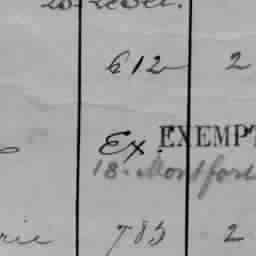 612 2
Ex. EXEMPT
18. Montford
rie 785 2